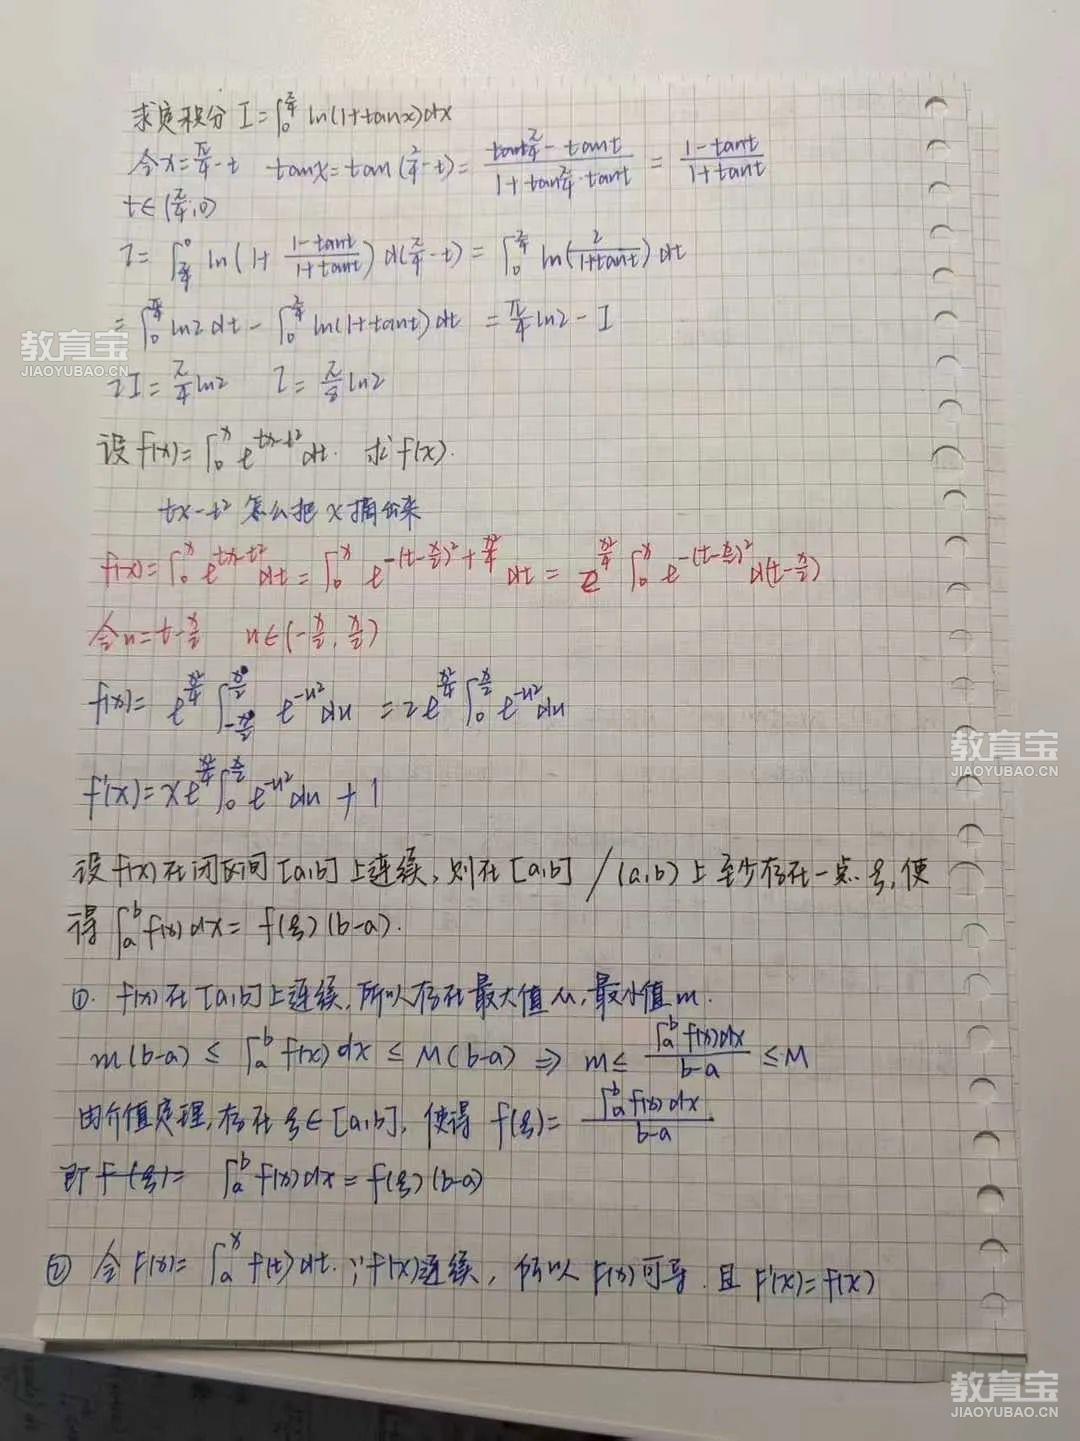 求定积分 I=∫₀^{π/4} ln(1+tanx)dx
令x=π/4-t tanx=tan(π/4-t)= (tanπ/4-tant)/(1+tanπ/4·tant) = (1-tant)/(1+tant)
t∈(π/4,0)
I=∫_{π/4}^0 ln(1+(1-tant)/(1+tant))d(π/4-t)=∫₀^{π/4} ln(2/(1+tant))dt
=∫₀^{π/4} ln2dt-∫₀^{π/4} ln(1+tant)dt =π/4 ln2-I
2I=π/4 ln2 I=π/8 ln2
设f(x)=∫₀^x e^{tx-t²}dt. 求f'(x).
tx-t² 怎么把x摘出来
f(x)=∫₀^x e^{tx-t²}dt=∫₀^x e^{-(t-x/2)²+x²/4}dt= e^{x²/4}∫₀^x e^{-(t-x/2)²}d(t-x/2)
令u=t-x/2 u∈(-x/2,x/2)
f(x)= e^{x²/4}∫_{-x/2}^{x/2} e^{-u²}du =2e^{x²/4}∫₀^{x/2}e^{-u²}du
f'(x)=xe^{x²/4}∫₀^{x/2}e^{-u²}du+1
设f(x)在闭区间[a,b]上连续,则在[a,b]/(a,b)上至少存在一点ξ,使
得∫_a^b f(x)dx=f(ξ)(b-a).
①. f(x)在[a,b]上连续,所以存在最大值M,最小值m.
m(b-a)≤∫_a^b f(x)dx≤M(b-a)⇒m≤(∫_a^b f(x)dx)/(b-a)≤M
由介值定理,存在ξ∈[a,b],使得f(ξ)=(∫_a^b f(x)dx)/(b-a)
即f(ξ)= ∫_a^b f(x)dx=f(ξ)(b-a)
② 令F(x)=∫_a^x f(t)dt.∵f(x)连续,所以F(x)可导.且F'(x)=f(x)
教育宝
JIAOYUBAO.CN
教育宝
JIAOYUBAO.CN
教育宝
JIAOYUBAO.CN